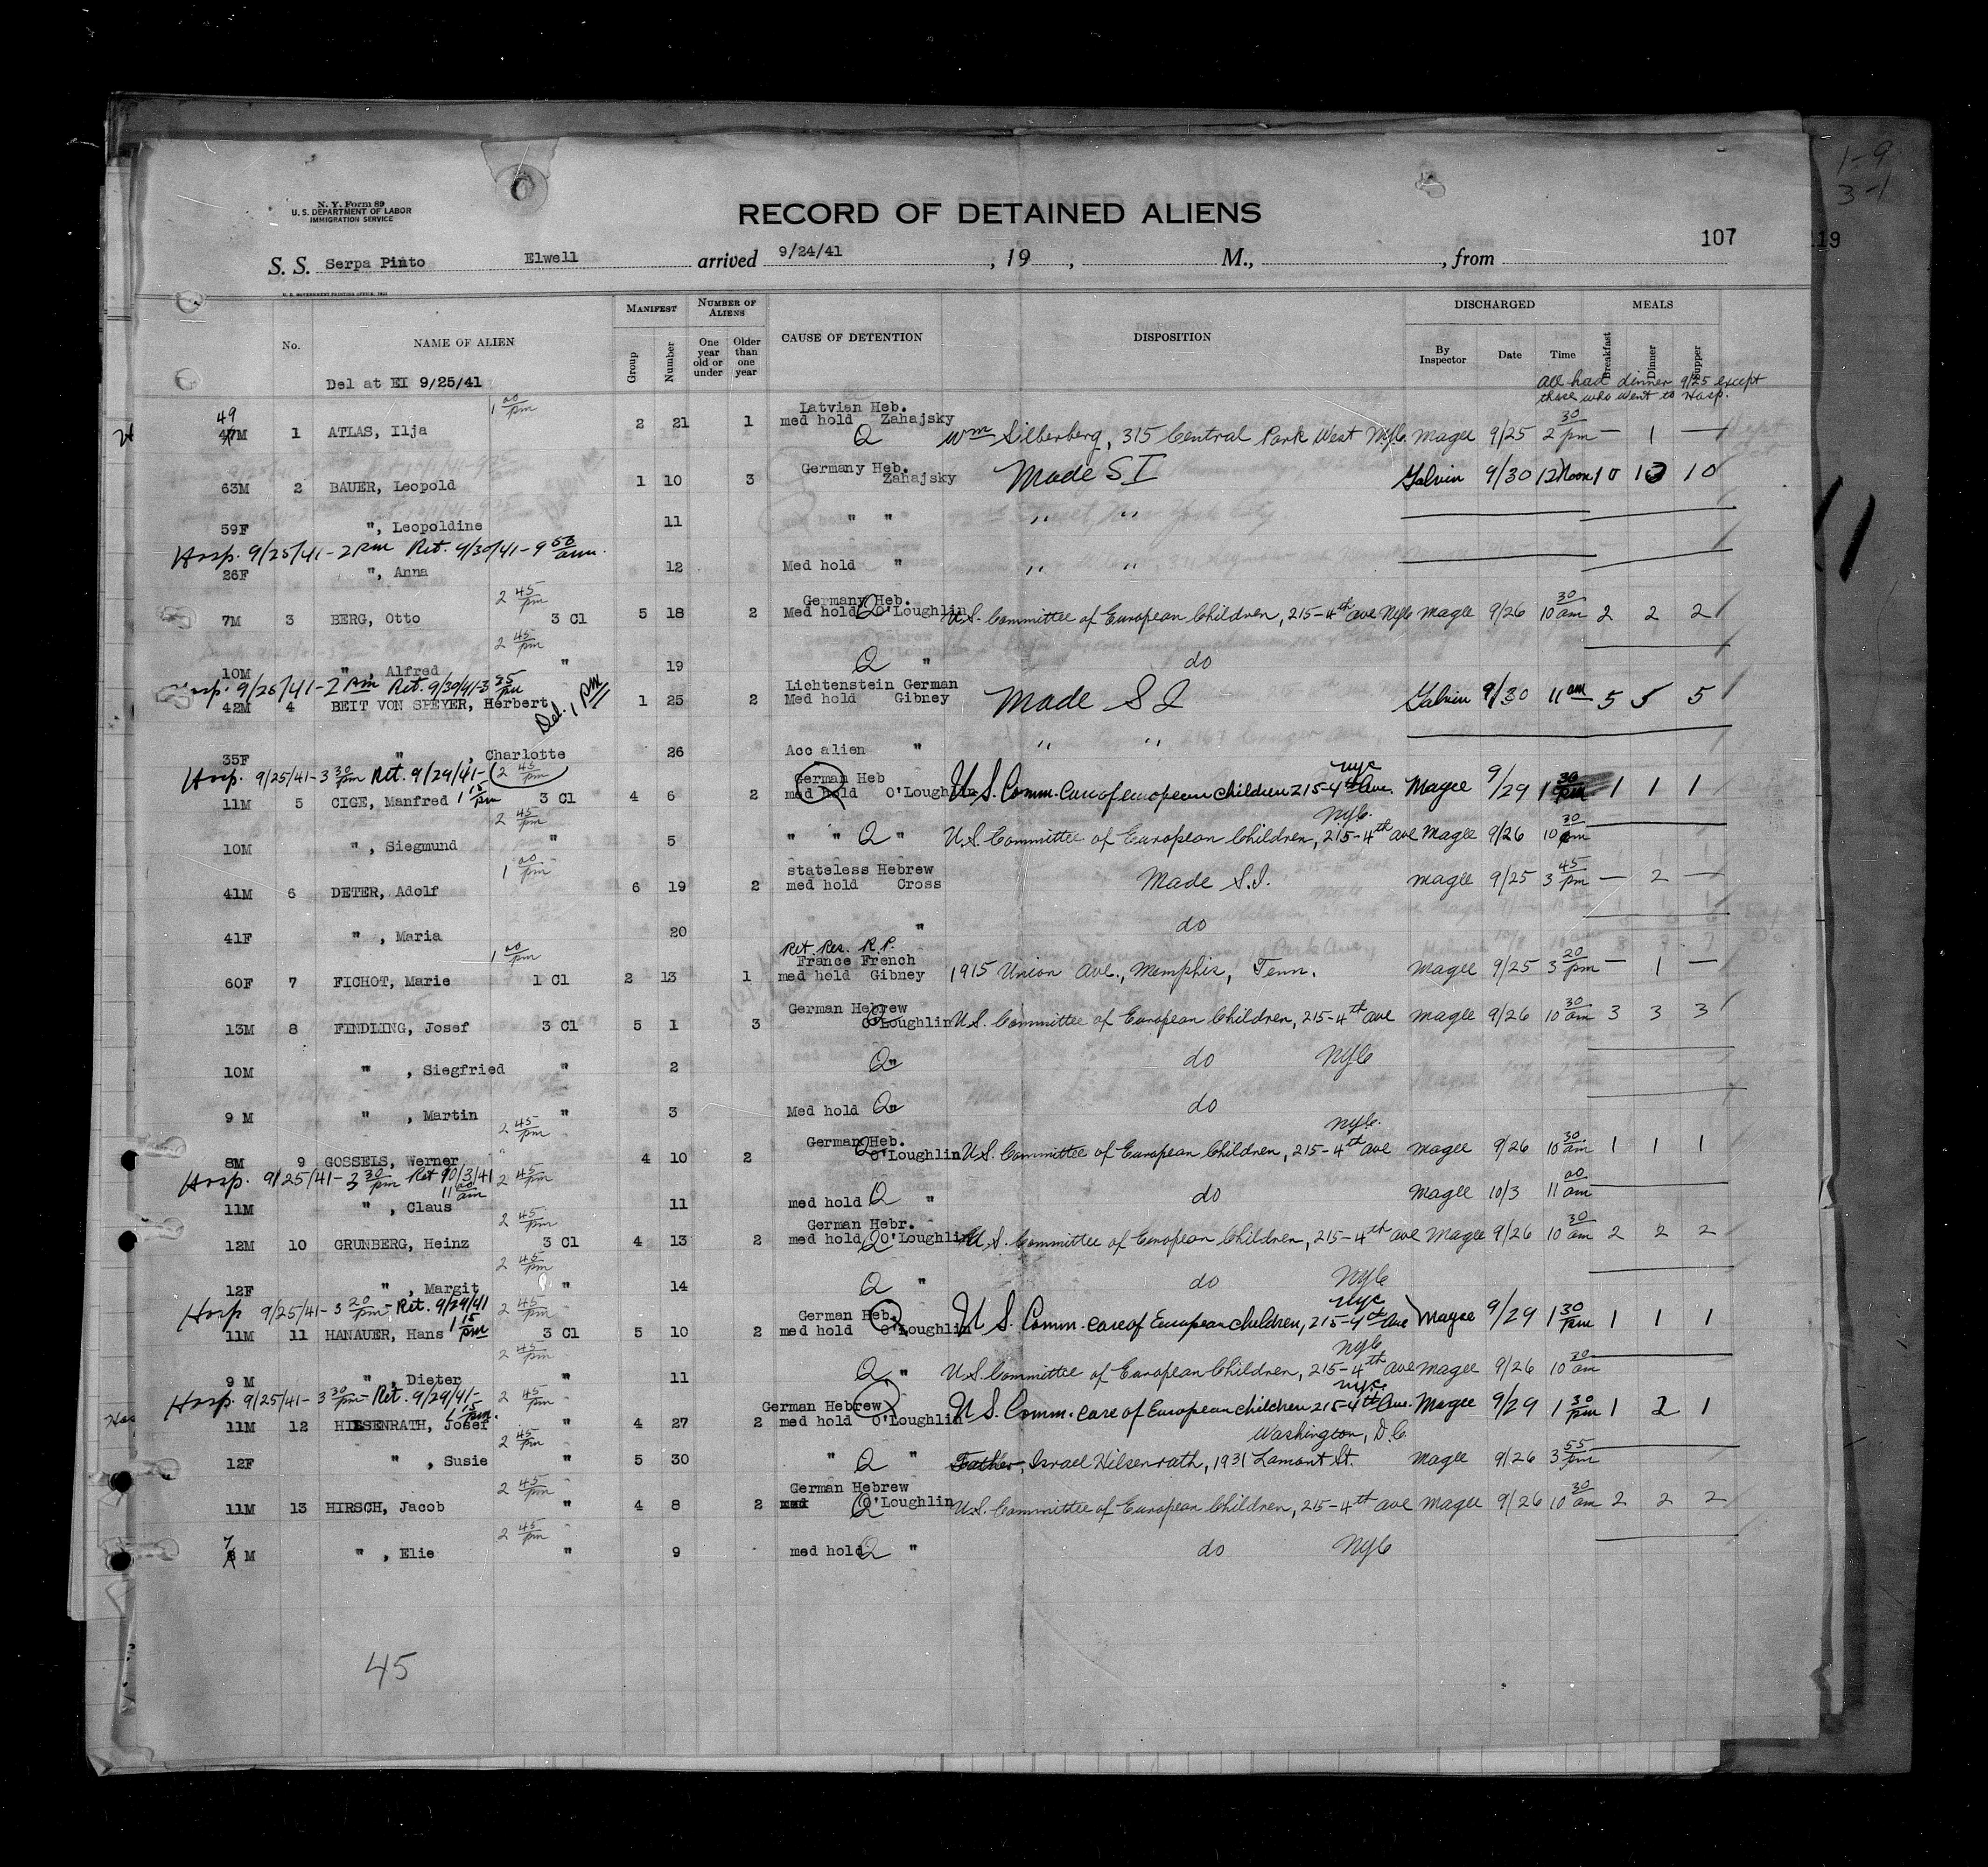 1-9
3-1
N. Y. Form 89
U. S. DEPARTMENT OF LABOR
IMMIGRATION SERVICE
RECORD OF DETAINED ALIENS
107
119
S. S. Serpa Pinto Elwell arrived 9/24/41, 19 , M., , from
U. S. GOVERNMENT PRINTING OFFICE
No. NAME OF ALIEN MANIFEST Group Number NUMBER OF ALIENS One year old or under Older than one year CAUSE OF DETENTION DISPOSITION DISCHARGED By Inspector Date Time MEALS Breakfast Dinner Supper
Del at EI 9/25/41
all had dinner 9/25 except
those who went to Hosp.
1 00 pm Latvian Heb.
49 47M 1 ATLAS, Ilja 2 21 1 med hold Zahajsky Q Wm Silberberg, 315 Central Park West NYC. Magee 9/25 2 30 pm — 1 —
63M 2 BAUER, Leopold 1 10 3 Germany Heb. Zahajsky Made S I Galvin 9/30 12 Noon 10 10 10
59F ", Leopoldine 11 " " " "
Hosp. 9/25/41-2 pm Ret. 9/30/41-9 50 am.
26F ", Anna 12 Med hold " " "
2 45 pm Germany Heb.
7M 3 BERG, Otto 3 Cl 5 18 2 Med hold Q O'Loughlin U.S. Committee of European Children, 215-4th ave NYC Magee 9/26 10 30 am 2 2 2
2 45 pm
10M ", Alfred " 19 Q " do
Hosp. 9/26/41-2 pm Ret. 9/30/41-3 35 pm Lichtenstein German
42M 4 BEIT VON SPEYER, Herbert Del. 1 pm 1 25 2 Med hold Gibney Made S I Galvin 9/30 11 am 5 5 5
35F " , Charlotte 26 Acc alien " " "
Hosp. 9/25/41-3 30 pm Ret. 9/29/41- 2 45 pm German Heb NYC
11M 5 CIGE, Manfred 1 15 pm 3 Cl 4 6 2 med hold O'Loughlin U S. Comm. Care of european children 215-4th Ave. Magee 9/29 1 30 pm 1 1 1
2 45 pm NYC.
10M ", Siegmund " 5 " " Q " U.S. Committee of European Children, 215-4th ave Magee 9/26 10 30 am
1 00 pm stateless Hebrew
41M 6 DETER, Adolf 6 19 2 med hold Cross Made S.I. Magee 9/25 3 45 pm — 2 —
41F " , Maria 20 " do
1 00 pm Ret. Res. R.P.
France French
60F 7 FICHOT, Marie 1 Cl 2 13 1 med hold Gibney 1915 Union Ave., Memphis, Tenn. Magee 9/25 3 20 pm — 1 —
German Hebrew
13M 8 FINDLING, Josef 3 Cl 5 1 3 Q O'Loughlin U.S. Committee of European Children, 215-4th ave Magee 9/26 10 30 am 3 3 3
10M " , Siegfried " 2 Q" do NYC
9 M " , Martin " 3 Med hold Q" do
2 45 pm German Heb. NYC.
8M 9 GOSSELS, Werner " 4 10 2 Q O'Loughlin U.S. Committee of European Children, 215-4th ave Magee 9/26 10 30 am 1 1 1
Hosp. 9/25/41-3 30 pm Ret 10/3/41 11 00 am 2 45 pm
11M " , Claus 11 med hold Q " do Magee 10/3 11 00 am
2 45 pm German Hebr.
12M 10 GRUNBERG, Heinz 3 Cl 4 13 2 med hold Q O'Loughlin U.S. Committee of European Children, 215-4th ave Magee 9/26 10 30 am 2 2 2
2 45 pm
12F " , Margit " 14 Q " do NYC
Hosp 9/25/41-3 20 pm- Ret. 9/29/41 1 15 pm 2 45 pm German Heb. NYC
11M 11 HANAUER, Hans 3 Cl 5 10 2 med hold O'Loughlin U S. Comm. care of European children, 215-4th Ave Magee 9/29 1 30 pm 1 1 1
2 45 pm NYC
9 M " , Dieter " 11 Q " U.S. Committee of European Children, 215-4th ave Magee 9/26 10 30 am
Hosp. 9/25/41-3 30 pm- Ret. 9/29/41- 1 15 pm. 2 45 pm German Hebrew NYC.
11M 12 HILSENRATH, Josef " 4 27 2 med hold O'Loughlin U S. Comm. care of European children 215-4th Ave. Magee 9/29 1 30 pm 1 2 1
2 45 pm Washington, D.C.
12F " , Susie " 5 30 " Q " Father, Israel Hilsenrath, 1931 Lamont St. Magee 9/26 3 55 pm
2 45 pm German Hebrew
11M 13 HIRSCH, Jacob " 4 8 2 med Q O'Loughlin U.S. Committee of European Children, 215-4th ave Magee 9/26 10 30 am 2 2 2
2 45 pm
7 8 M " , Elie " 9 med hold Q " do NYC
45